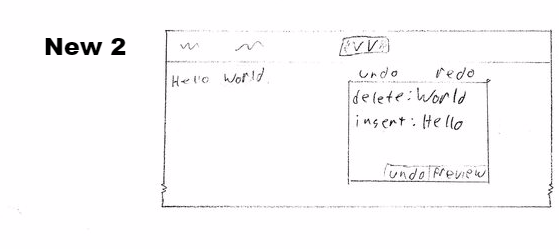 New 2
Hello World.
undo redo
delete: World
insert: Hello
undo Preview